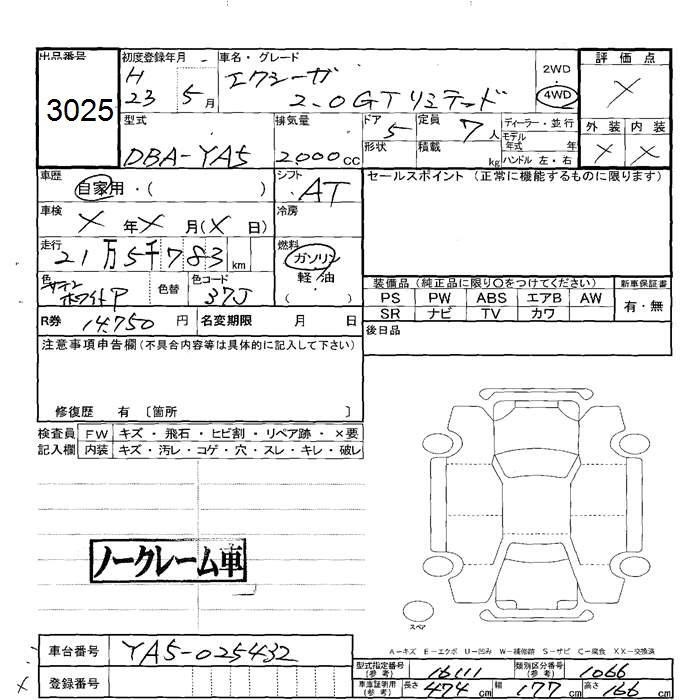 出品番号
3025
初度登録年月
H 23 5 月
車名・グレード
エクシーガ
2.0GTリミテッド
2WD
4WD
評価点
X
外装 内装
X X
型式
DBA-YA5
排気量
2000 cc
ドア
5
形状
定員
7 人
積載
kg
ディーラー・並行
モデル年式 年
ハンドル 左・右
車歴
自家用・( )
シフト
AT
車検
X 年 X 月(X 日)
冷房
走行
21万5千783 km
燃料
ガソリン
軽油
( )
色
サテンホワイトP
色替
色コード
37J
セールスポイント (正常に機能するものに限ります)
装備品 (純正品に限り○をつけてください)
新車保証書
PS PW ABS エアB AW
SR ナビ TV カワ
有・無
後日品
R券 14,750 円
名変期限 月 日
注意事項申告欄(不具合内容等は具体的に記入して下さい)
修復歴 有 〔箇所 〕
検査員記入欄
FW キズ・飛石・ヒビ割・リペア跡・×要
内装 キズ・汚レ・コゲ・穴・スレ・キレ・破レ
ノークレーム車
スペア
A−キズ E−エクボ U−凹み W−補修跡 S−サビ C−腐食 XX−交換済
車台番号
YA5-025432
登録番号
X
型式指定番号(参考)
16111
類別区分番号(参考)
1066
車庫証明用(参考)
長さ 474 cm
幅 177 cm
高さ 166 cm